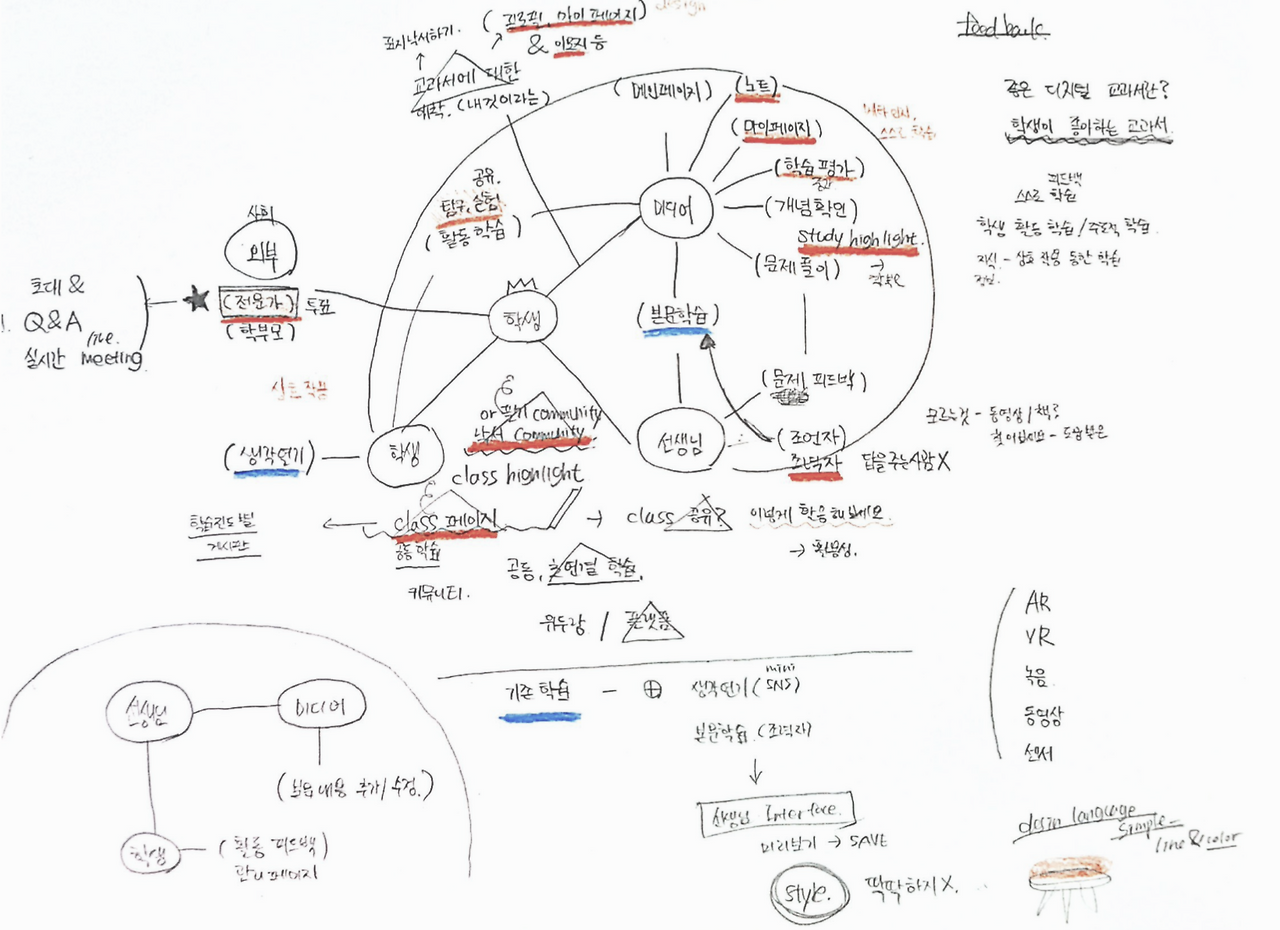 표지낙서하기.
(프로필, 마이페이지)
& 이모지 등
design
교과서에 대한
애착. (내것이라는)
feedback
좋은 디지털 교과서란?
학생이 좋아하는 교과서.
피드백
스스로 학습
학생 활동 학습 / 주도적 학습.
지식 - 상호 작용 통한 학습
정보.
(메인페이지)
(노트)
(마이페이지)
스스로 학습
(학습평가)
미디어
(개념확인)
study highlight.
(문제풀이)
공유.
탐구, 실험
(활동학습)
사회
외부
(전문가) 투표
(학부모)
초대 &
Q&A
live.
실시간 meeting.
학생
(본문학습)
상호작용
(문제, 피드백)
선생님
(조언자)
조력자
답을 주는 사람 X
모르는것 - 동영상 / 책?
찾아보세요 - 도움받은
or 필기 community
낙서 community
학생
(생각열기)
class highlight
class 페이지
공동학습
커뮤니티.
학습진도별
게시판
→ class 공유?
이렇게 학습해보세요.
→ 활용성.
공동, 초연결 학습.
위두랑 / 플랫폼
AR
VR
녹음
동영상
센서
기존 학습 - ⊕ 생각열기 (mini SNS)
본문학습 (조력자)
↓
선생님 Interface.
미리보기 → SAVE
style. 딱딱하지 X.
선생님
미디어
(본문내용 추가/수정.)
학생
(활동 피드백)
관리페이지
design language
simple -
line & color